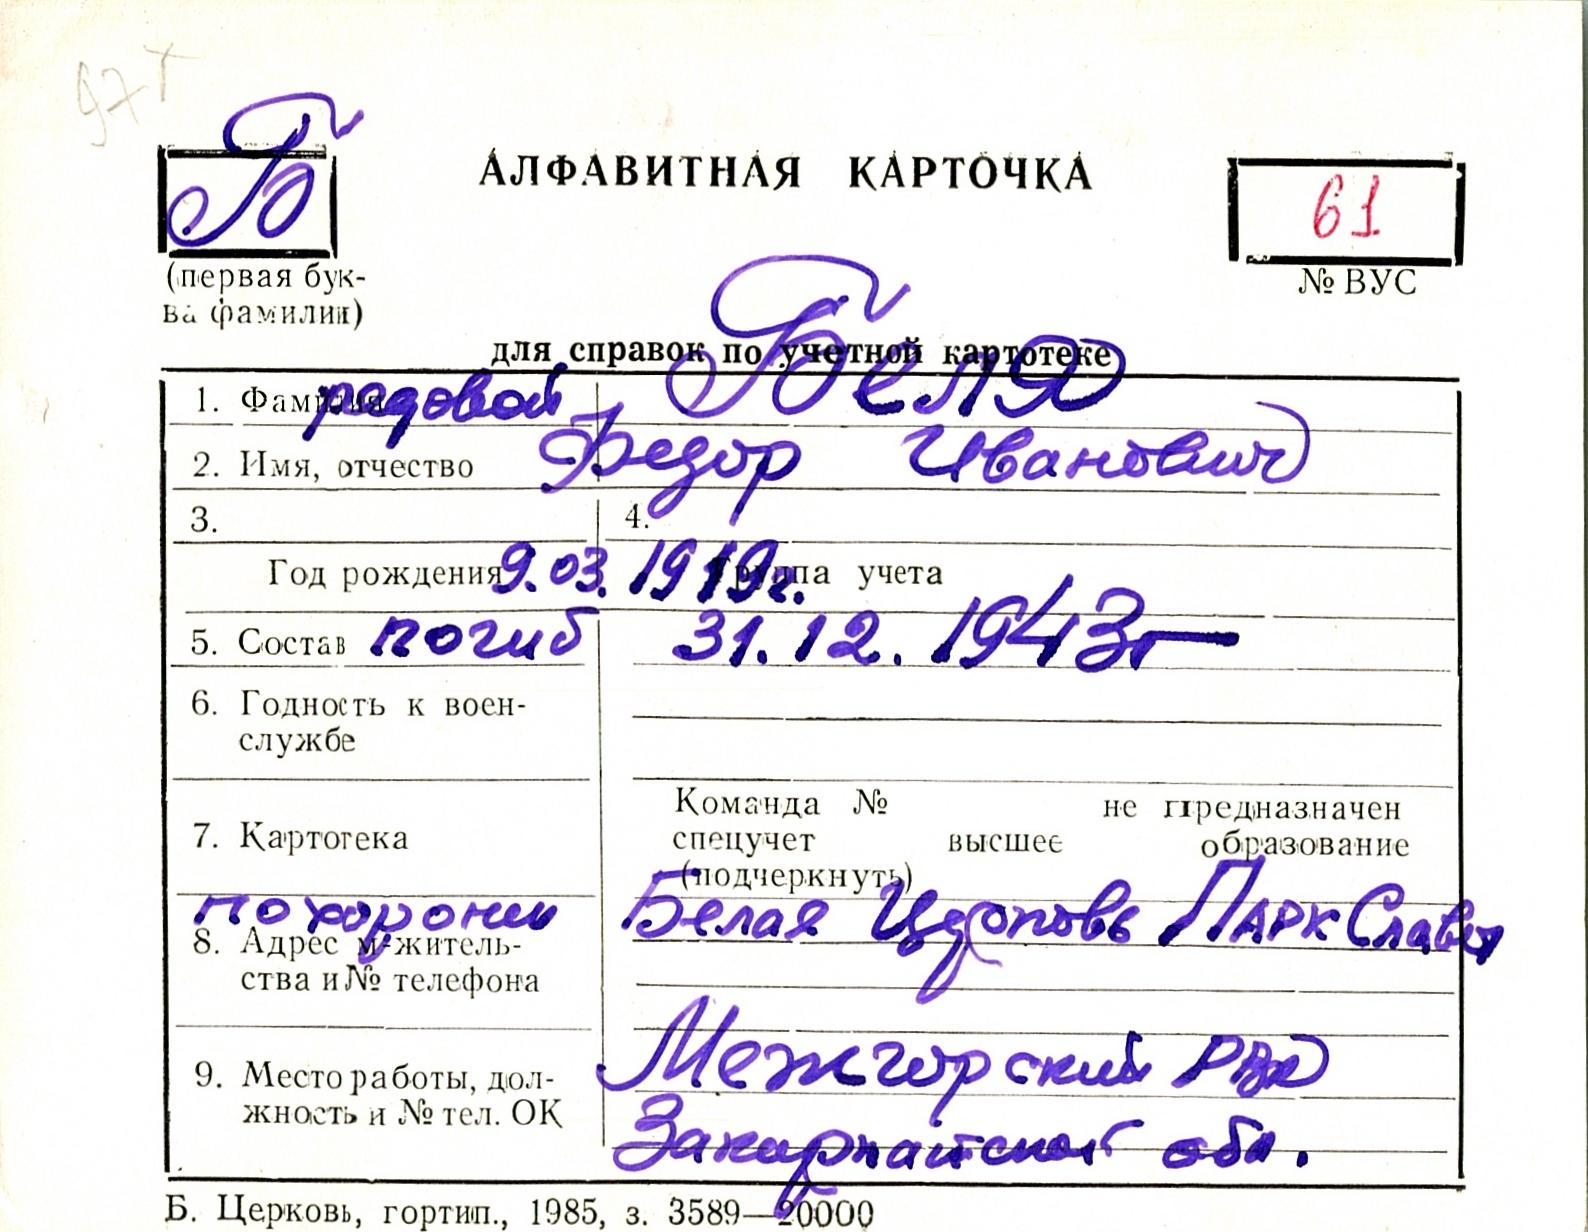 97 т
Б
АЛФАВИТНАЯ КАРТОЧКА
61
(первая бук-
ва фамилии)
№ ВУС
для справок по учетной картотеке
1. Фамилия рядовой Беля
2. Имя, отчество Федор Иванович
3. 4.
Год рождения 9.03.1919г. Группа учета
5. Состав погиб 31.12.1943г
6. Годность к воен-
службе
Команда № не предназначен
7. Картотека спецучет высшее образование
(подчеркнуть)
похоронен Белая Церковь Парк Славы
8. Адрес м-житель-
ства и № телефона
Межгорский РВК
9. Место работы, дол-
жность и № тел. ОК
Закарпатской обл.
Б. Церковь, гортип., 1985, з. 3589—20000